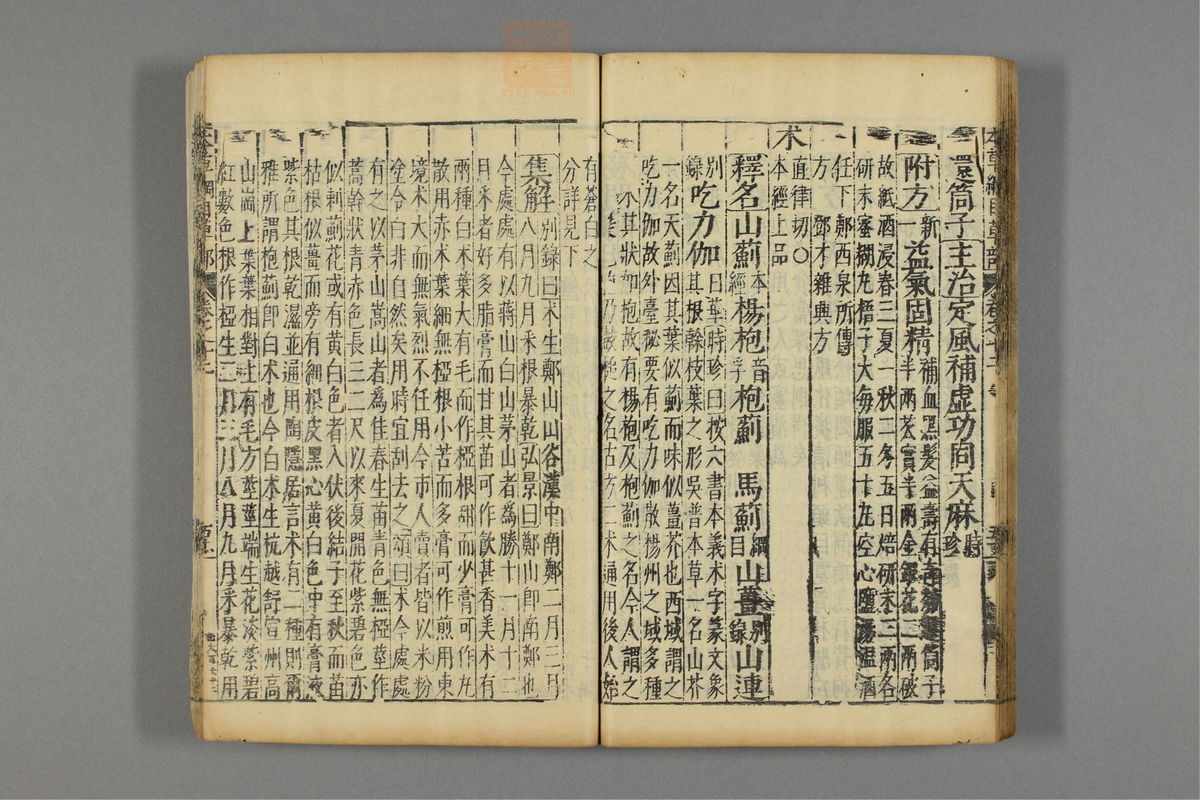 還筒子主治定風補虛功同天麻時珍
附方新一益氣固精補血黑髮益壽有奇效還筒子
半兩芡實半兩金銀花二兩破
故紙酒浸春三夏一秋二冬五日焙研末二兩各
研末蜜糊丸梧子大每服五十丸空心鹽湯溫酒
任下鄭西泉所傳
方 鄧才雜興方
术直律切○
本經上品
釋名山薊本經楊枹音孚枹薊 馬薊綱目山薑別錄山連
別錄吃力伽日華時珍曰按六書本義术字篆文象
其根幹枝葉之形吳普本草一名山芥
一名天薊因其葉似薊而味似薑芥也西域謂之
吃力伽故外臺秘要有吃力伽散楊州之域多種
术其狀如枹故有楊枹及枹薊之名今人謂之
乃 之名古方二术通用後人始
有蒼白之
分詳見下
集解別錄曰术生鄭山山谷漢中南鄭二月三月
八月九月采根暴乾弘景曰鄭山即南鄭也
今處處有以蔣山白山茅山者為勝十一月十二
月采者好多脂膏而甘其苗可作飲甚香美术有
兩種白术葉大有毛而作椏根甜而少膏可作丸
散用赤术葉細無椏根小苦而多膏可作煎用東
境术大而無氣烈不任用今市人賣者皆以米粉
塗令白非自然矣用時宜刮去之頌曰术今處處
有之以茅山嵩山者為佳春生苗青色無椏莖作
蒿幹狀青赤色長三二尺以來夏開花紫碧色亦
似刺薊花或有黃白色者入伏後結子至秋而苗
枯根似薑而旁有細根皮黑心黃白色中有膏液
紫色其根乾濕並通用陶隱居言术有二種則爾
雅所謂枹薊即白术也今白术生杭越舒宣州高
山崗上葉葉相對上有毛方莖莖端生花淡紫碧
紅數色根作椏生二月三月八月九月采暴乾用